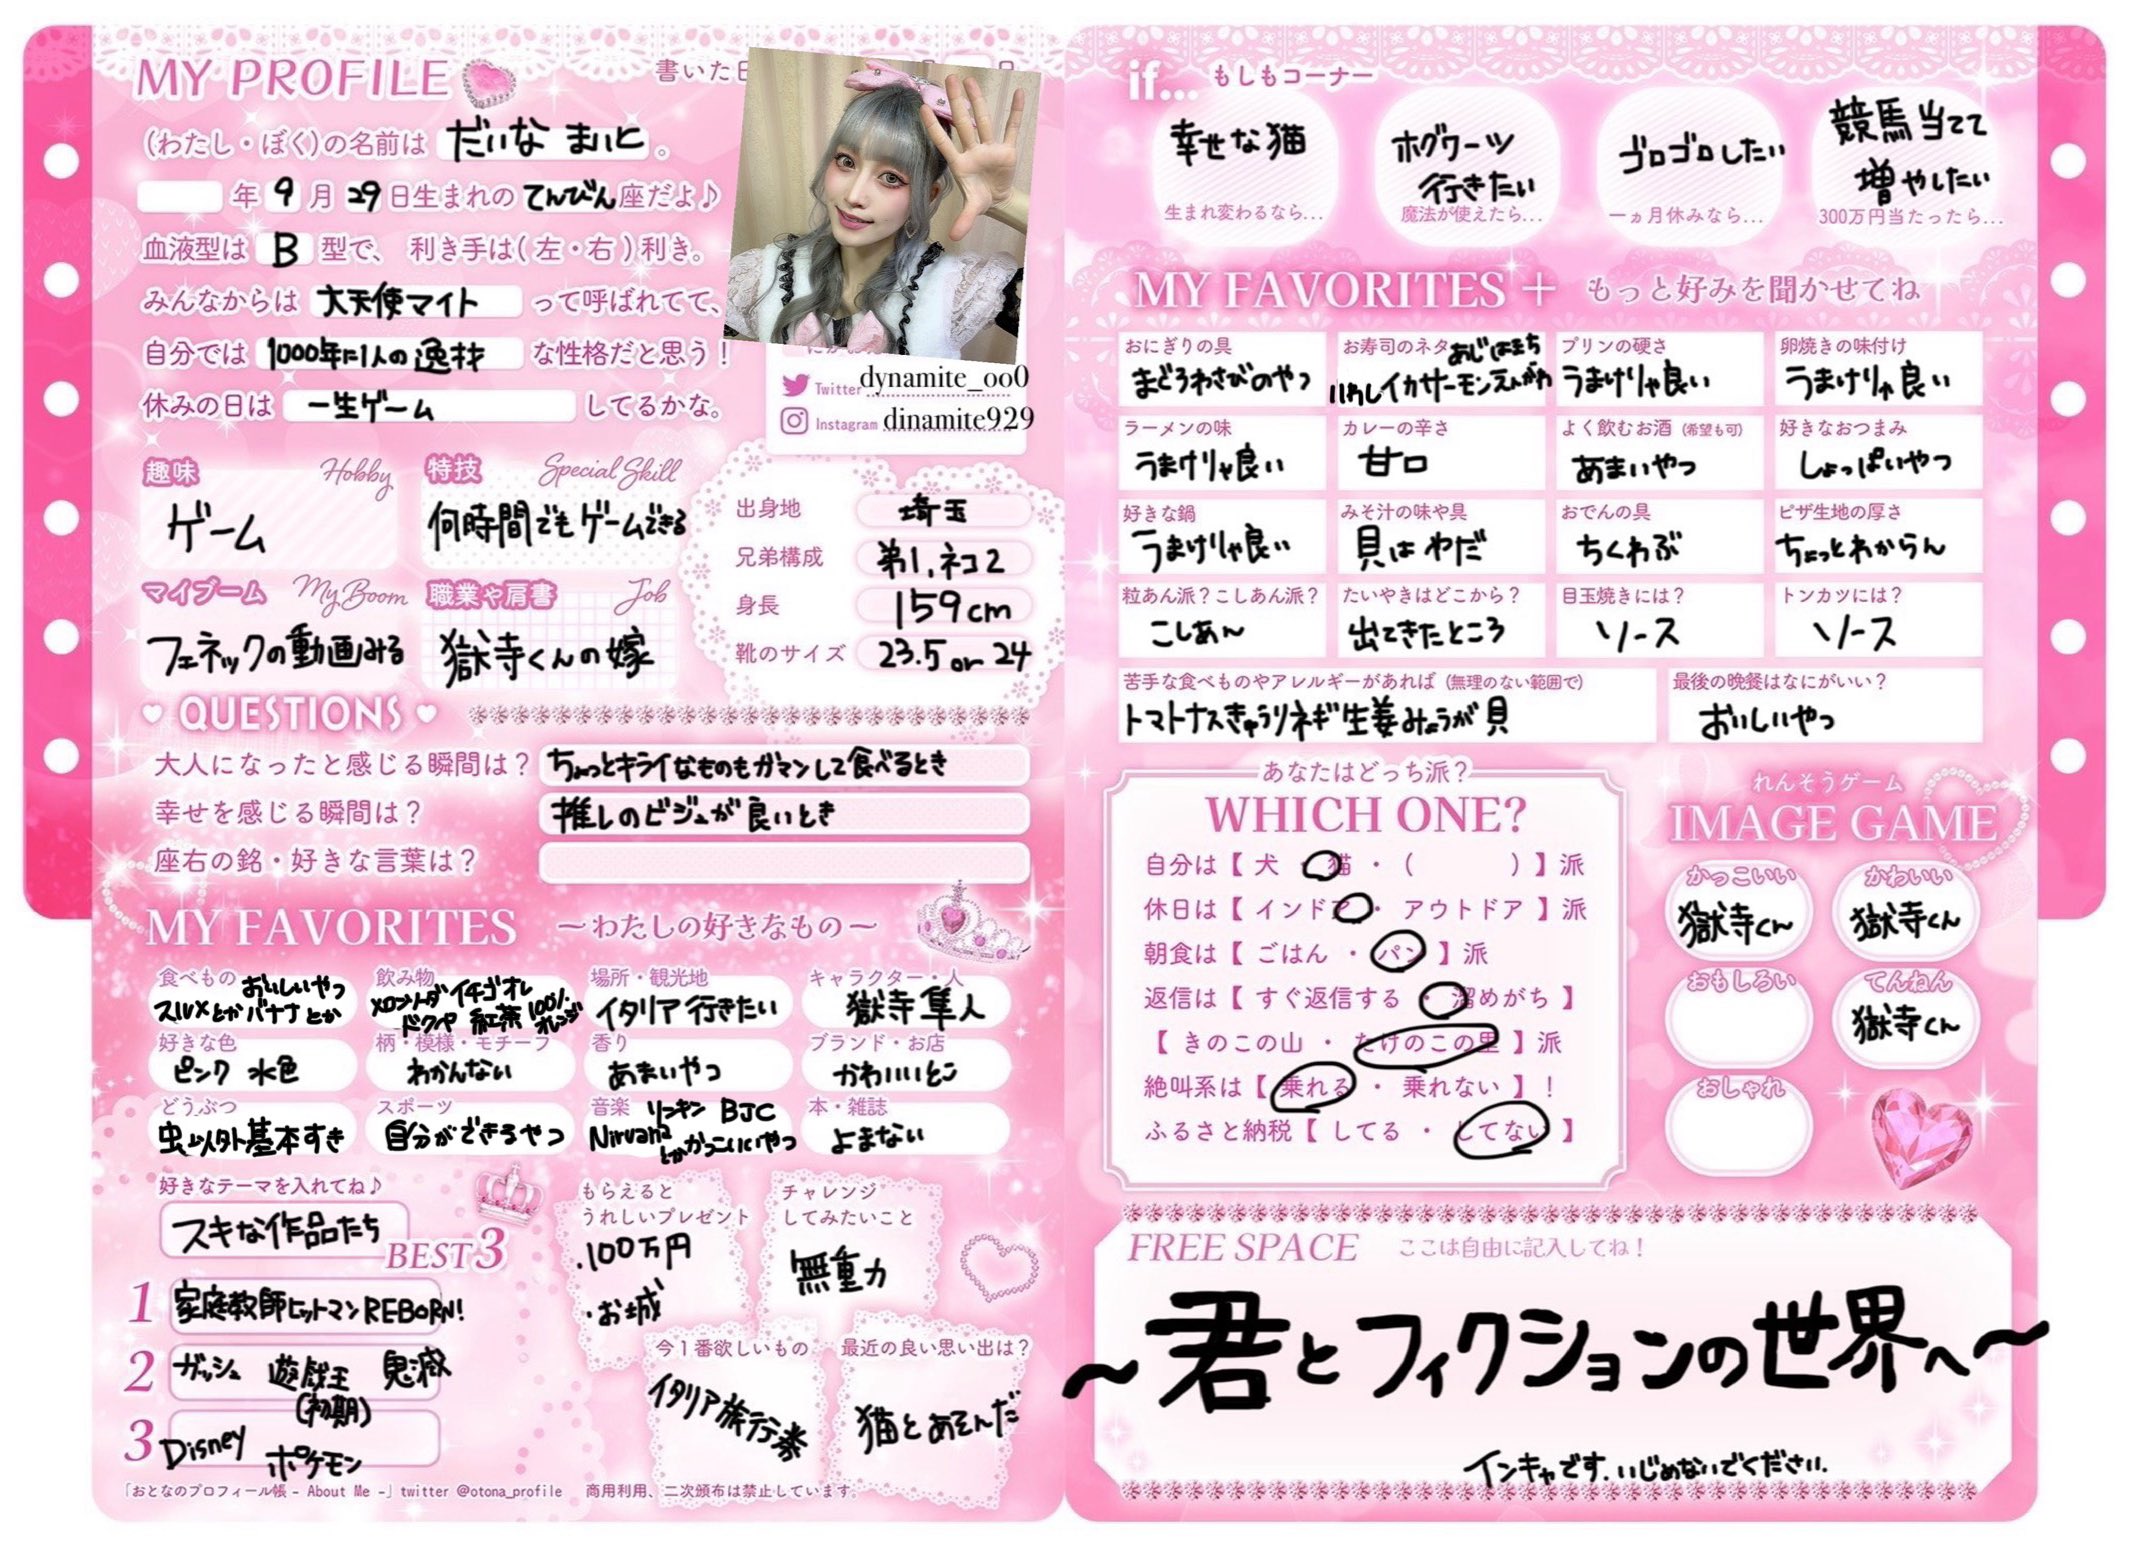 MY PROFILE
書いた日
(わたし・ぼく)の名前は だいな まいと 。
年 9 月 29 日生まれの てんびん 座だよ♪
血液型は B 型で、 利き手は(左・右)利き。
みんなからは 大天使マイト って呼ばれてて、
自分では 1000年に1人の逸材 な性格だと思う!
休みの日は 一生ゲーム してるかな。
Twitter dynamite_oo0
Instagram dinamite929
趣味 Hobby
ゲーム
特技 Special Skill
何時間でもゲームできる
マイブーム My Boom
フェネックの動画みる
職業や肩書 Job
獄寺くんの嫁
出身地 埼玉
兄弟構成 弟1,ネコ2
身長 159cm
靴のサイズ 23.5 or 24
QUESTIONS
大人になったと感じる瞬間は? ちょっとキライなものもガマンして食べるとき
幸せを感じる瞬間は? 推しのビジュが良いとき
座右の銘・好きな言葉は?
MY FAVORITES ~わたしの好きなもの~
食べもの おいしいやつ
スルメとかバナナとか
飲み物 メロンソーダ イチゴオレ
ドクペ 紅茶 100%オレンジ
場所・観光地
イタリア行きたい
キャラクター・人
獄寺隼人
好きな色
ピンク 水色
柄・模様・モチーフ
わかんない
香り
あまいやつ
ブランド・お店
かわいいとこ
どうぶつ
虫以外基本すき
スポーツ
自分ができるやつ
音楽 リンキン BJC
Nirvana とかかっこいいやつ
本・雑誌
よまない
好きなテーマを入れてね♪
スキな作品たち
BEST3
1 家庭教師ヒットマンREBORN!
2 ガッシュ 遊戯王(初期) 鬼滅
3 Disney ポケモン
もらえると
うれしいプレゼント
・100万円
・お城
チャレンジ
してみたいこと
無重力
今1番欲しいもの
イタリア旅行券
最近の良い思い出は?
猫とあそんだ
「おとなのプロフィール帳 - About Me -」twitter @otona_profile 商用利用、二次頒布は禁止しています。
if... もしもコーナー
幸せな猫
生まれ変わるなら...
ホグワーツ
行きたい
魔法が使えたら...
ゴロゴロしたい
一ヵ月休みなら...
競馬当てて
増やしたい
300万円当たったら...
MY FAVORITES + もっと好みを聞かせてね
おにぎりの具
まぐろわさびのやつ
お寿司のネタ あじ はまち
いわし イカ サーモン えんがわ
プリンの硬さ
うまけりゃ良い
卵焼きの味付け
うまけりゃ良い
ラーメンの味
うまけりゃ良い
カレーの辛さ
甘口
よく飲むお酒 (希望も可)
あまいやつ
好きなおつまみ
しょっぱいやつ
好きな鍋
うまけりゃ良い
みそ汁の味や具
貝はやだ
おでんの具
ちくわぶ
ピザ生地の厚さ
ちょっとわからん
粒あん派?こしあん派?
こしあん
たいやきはどこから?
出てきたところ
目玉焼きには?
ソース
トンカツには?
ソース
苦手な食べものやアレルギーがあれば (無理のない範囲で)
トマトナスきゅうりネギ生姜みょうが貝
最後の晩餐はなにがいい?
おいしいやつ
あなたはどっち派?
WHICH ONE?
自分は【 犬 ・ 猫 ・ ( ) 】派
休日は【 インドア ・ アウトドア 】派
朝食は【 ごはん ・ パン 】派
返信は【 すぐ返信する ・ 溜めがち 】
【 きのこの山 ・ たけのこの里 】派
絶叫系は【 乗れる ・ 乗れない 】!
ふるさと納税【 してる ・ してない 】
れんそうゲーム
IMAGE GAME
かっこいい
獄寺くん
かわいい
獄寺くん
おもしろい
てんねん
獄寺くん
おしゃれ
FREE SPACE ここは自由に記入してね!
~君とフィクションの世界へ~
インキャです.いじめないでください.